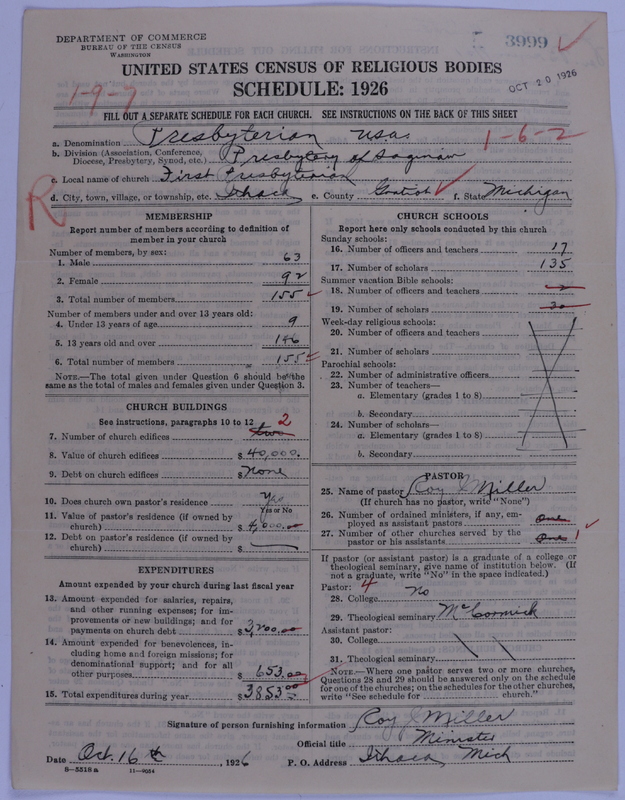 DEPARTMENT OF COMMERCE
BUREAU OF THE CENSUS
WASHINGTON
3999
UNITED STATES CENSUS OF RELIGIOUS BODIES
SCHEDULE: 1926
OCT 20 1926
1-9-7
FILL OUT A SEPARATE SCHEDULE FOR EACH CHURCH. SEE INSTRUCTIONS ON THE BACK OF THIS SHEET
a. Denomination Presbyterian USA. 1-6-2
b. Division (Association, Conference, Diocese, Presbytery, Synod, etc.) Presbytery of Saginaw
c. Local name of church First Presbyterian
d. City, town, village, or township, etc. Ithaca e. County Gratiot f. State Michigan
R
MEMBERSHIP
Report number of members according to definition of
member in your church
Number of members, by sex:
1. Male 63
2. Female 92
3. Total number of members 155
Number of members under and over 13 years old:
4. Under 13 years of age 9
5. 13 years old and over 146
6. Total number of members 155
NOTE.—The total given under Question 6 should be the
same as the total of males and females given under Question 3.
CHURCH BUILDINGS
See instructions, paragraphs 10 to 12
7. Number of church edifices two 2
8. Value of church edifices $ 40,000.
9. Debt on church edifices $ None
10. Does church own pastor's residence Yes
Yes or No
11. Value of pastor's residence (if owned by
church) $ 4,000.00
12. Debt on pastor's residence (if owned by
church) $
EXPENDITURES
Amount expended by your church during last fiscal year
13. Amount expended for salaries, repairs,
and other running expenses; for im-
provements or new buildings; and for
payments on church debt $ 3,200.00
14. Amount expended for benevolences, in-
cluding home and foreign missions; for
denominational support; and for all
other purposes $ 653.00
15. Total expenditures during year $ 3853.00
CHURCH SCHOOLS
Report here only schools conducted by this church
Sunday schools:
16. Number of officers and teachers 17
17. Number of scholars 135
Summer vacation Bible schools:
18. Number of officers and teachers
19. Number of scholars
Week-day religious schools:
20. Number of officers and teachers
21. Number of scholars
Parochial schools:
22. Number of administrative officers
23. Number of teachers—
a. Elementary (grades 1 to 8)
b. Secondary
24. Number of scholars—
a. Elementary (grades 1 to 8)
b. Secondary
PASTOR
25. Name of pastor Roy J Miller
(If church has no pastor, write "None")
26. Number of ordained ministers, if any, em-
ployed as assistant pastors One
27. Number of other churches served by the
pastor or his assistants One 1
If pastor (or assistant pastor) is a graduate of a college or
theological seminary, give name of institution below. (If
not a graduate, write "No" in the space indicated.)
Pastor: 4
28. College No
29. Theological seminary McCormick
Assistant pastor:
30. College
31. Theological seminary
NOTE.—Where one pastor serves two or more churches,
Questions 28 and 29 should be answered only on the schedule
for one of the churches; on the schedules for the other churches,
write "See schedule for church."
Signature of person furnishing information Roy J Miller
Official title Minister
Date Oct. 16th, 1926 P. O. Address Ithaca Mich
8—5518a 11—9054